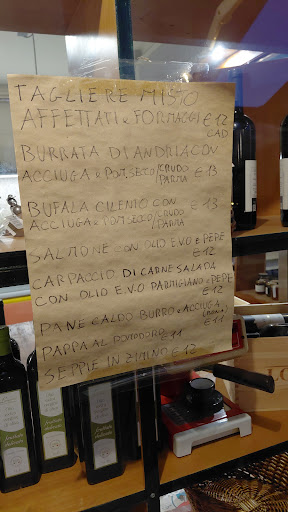 TAGLIERE MISTO
AFFETTATI e FORMAGGI € 12
CAD
BURRATA DI ANDRIA CON
ACCIUGA e POM.SECCO/CRUDO PARMA € 13
BUFALA CILENTO CON
ACCIUGA e POM SECCO/CRUDO PARMA € 13
SALMONE CON OLIO E.V.O e PEPE
€ 12
CARPACCIO DI CARNE SALADA
CON OLIO E.V.O PARMIGIANO e PEPE
€ 12
PANE CALDO BURRO e ACCIUGA
€ 11
PAPPA AL POMODORO € 11
SEPPIE IN ZIMINO € 12